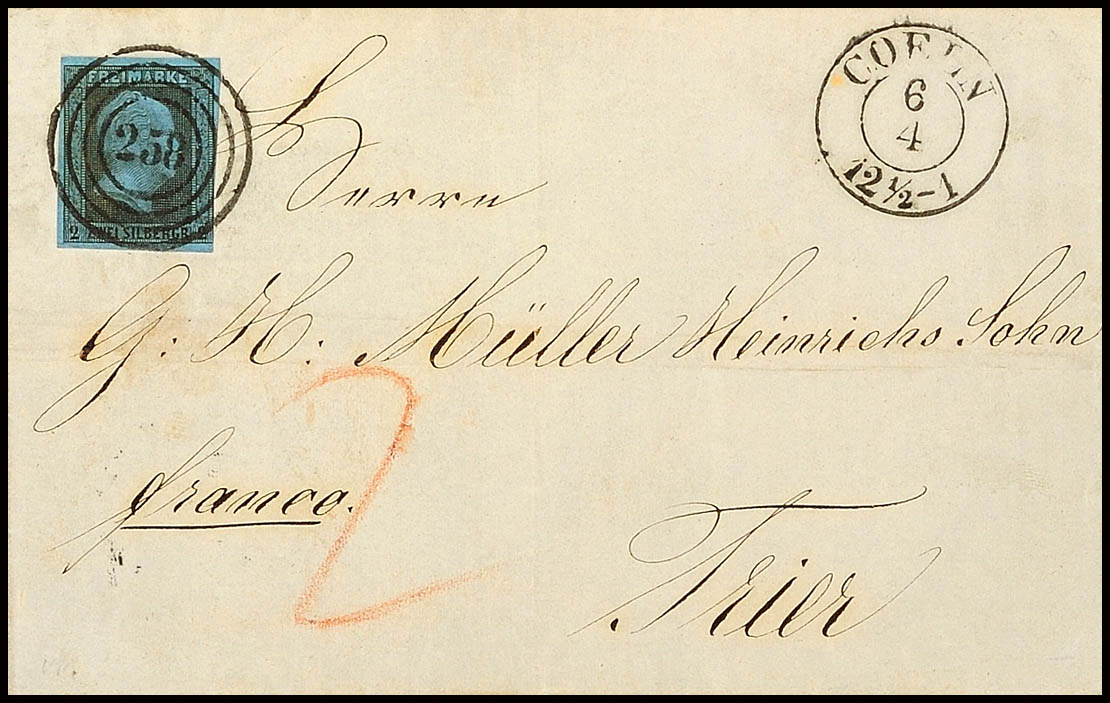 FREIMARKE
258
2 ZWEI SILBERGR. 2
COELN
6
4
12 ½-1
Herrn
G: H: Müller Heinrichs Sohn
2
franco.
Trier